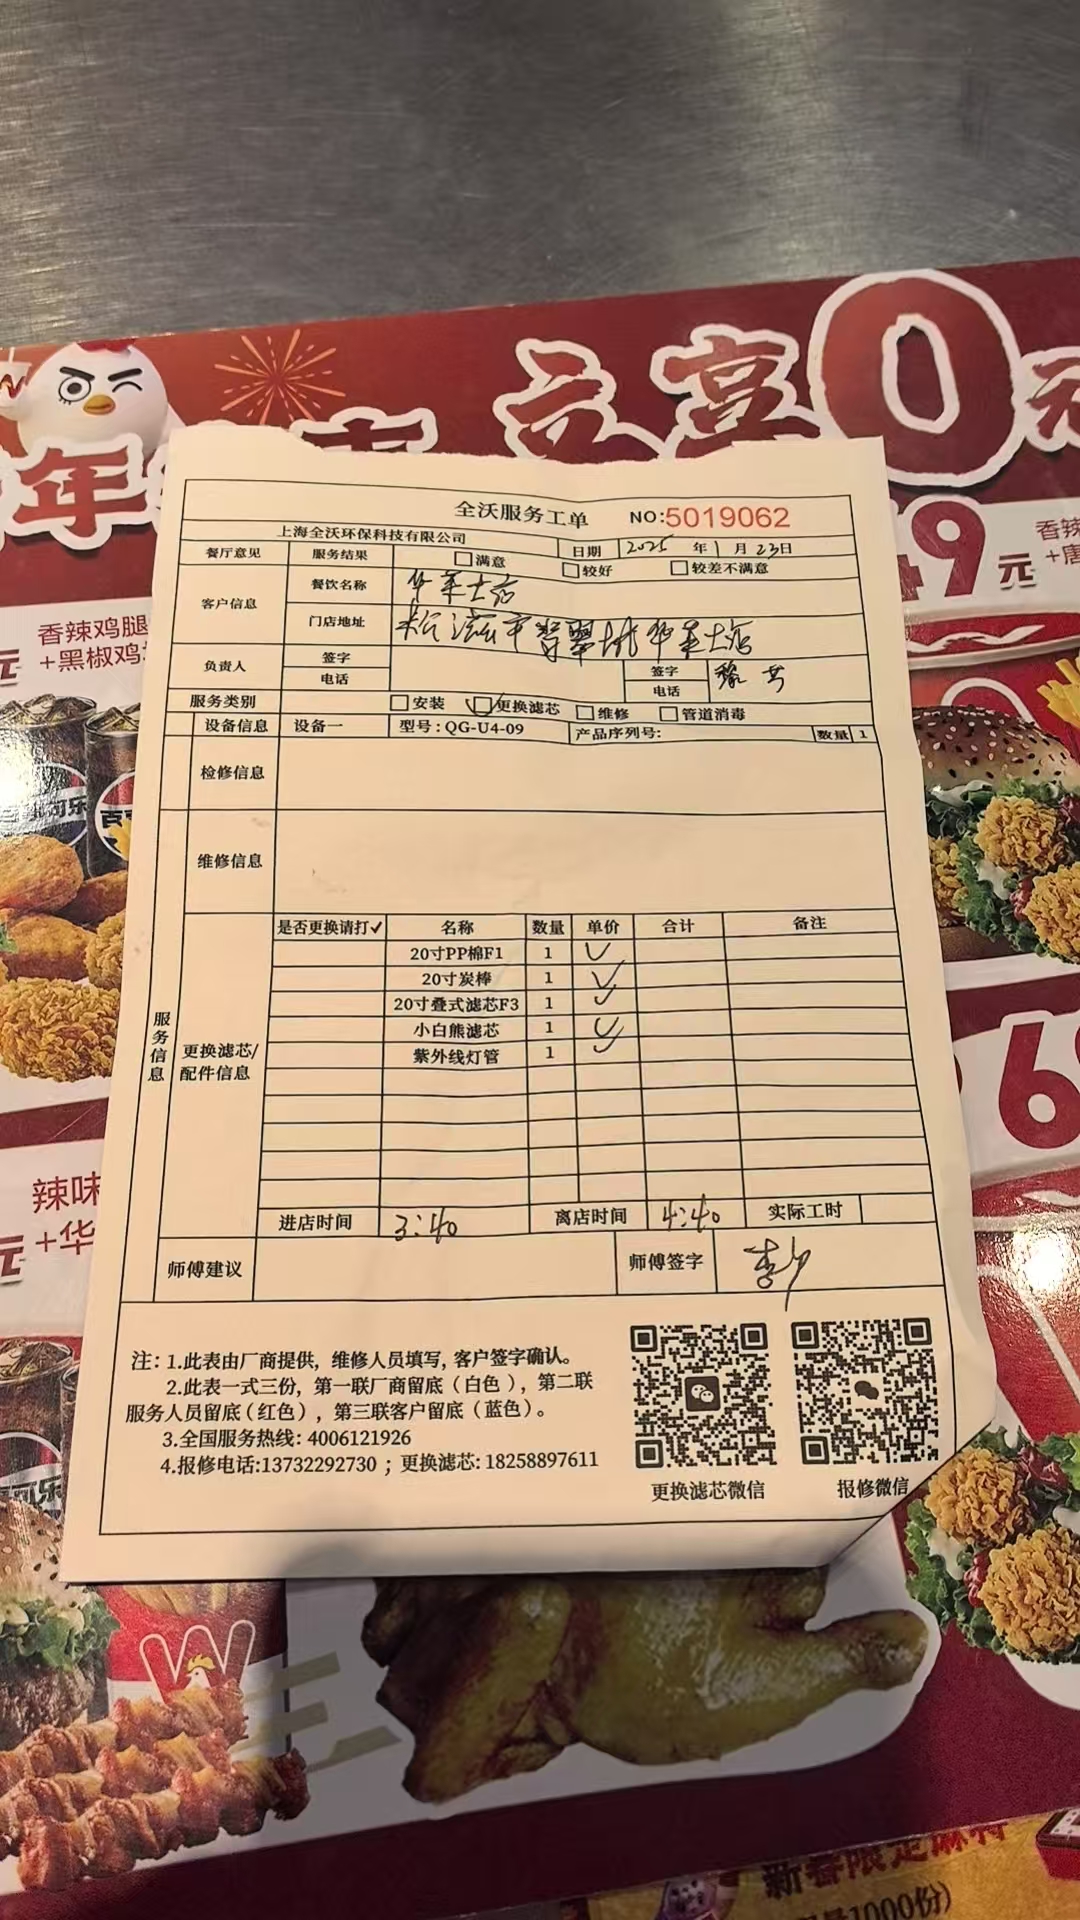 年
元享0元
49元
香辣
+唐
香辣鸡腿
元
+黑椒鸡
全沃服务工单 NO:5019062
上海全沃环保科技有限公司 日期 2025 年 1 月 23 日
餐厅意见 服务结果 满意 较好 较差不满意
客户信息 餐饮名称 华莱士店
门店地址 松滋市翡翠城华莱士店
负责人 签字 签字
电话 电话
服务类别 安装 更换滤芯 维修 管道消毒
设备信息 设备一 型号：QG-U4-09 产品序列号: 数量 1
检修信息
维修信息
是否更换请打✓ 名称 数量 单价 合计 备注
20寸PP棉F1 1 ✓
20寸炭棒 1 ✓
20寸叠式滤芯F3 1 ✓
小白熊滤芯 1 ✓
紫外线灯管 1 ✓
服务信息
更换滤芯/
配件信息
进店时间 3:40 离店时间 4:40 实际工时
师傅建议 师傅签字
注：1.此表由厂商提供，维修人员填写，客户签字确认。
2.此表一式三份，第一联厂商留底（白色），第二联
服务人员留底（红色），第三联客户留底（蓝色）。
3.全国服务热线：4006121926
4.报修电话:13732292730；更换滤芯: 18258897611
更换滤芯微信 报修微信
6
辣味
元+华
新春限定麻椒
1000份)